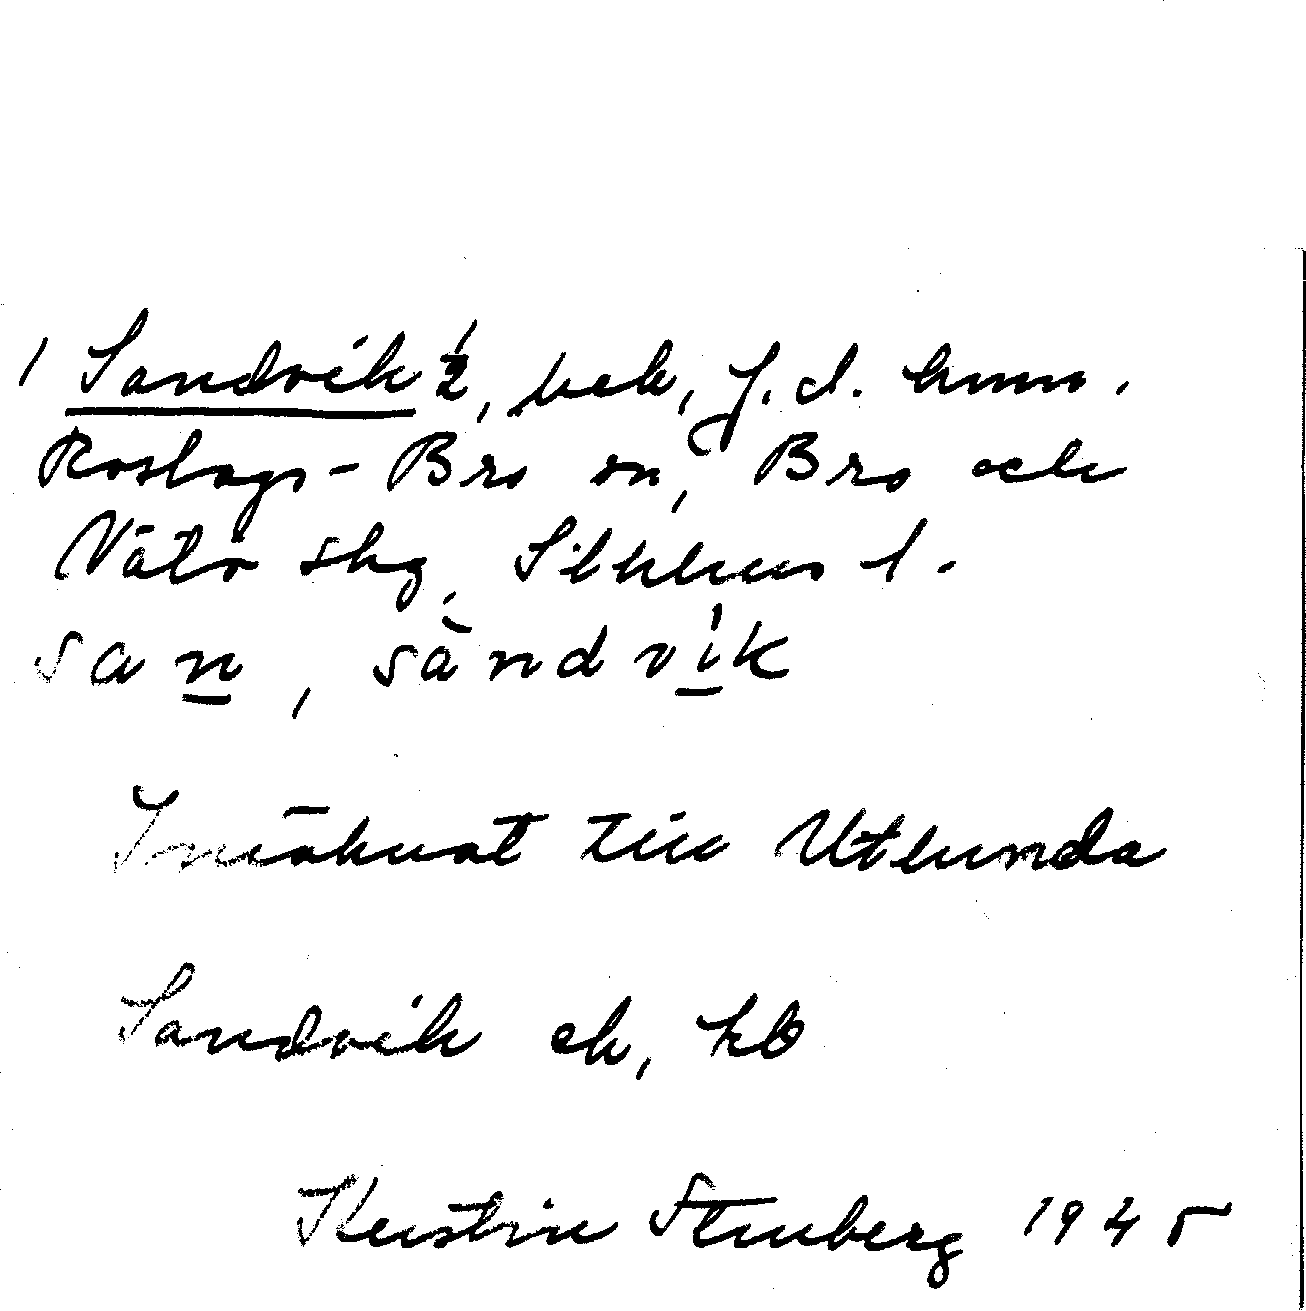 1 Sandvik 1/2, bek, f.d. kmm.
Roslags-Bro sn, Bro och
Vätö skg, Sthlms l.
san, sàndvik
Inräknat till Utlunda
Sandvik ek, kb
Kerstin Stenberg 1945